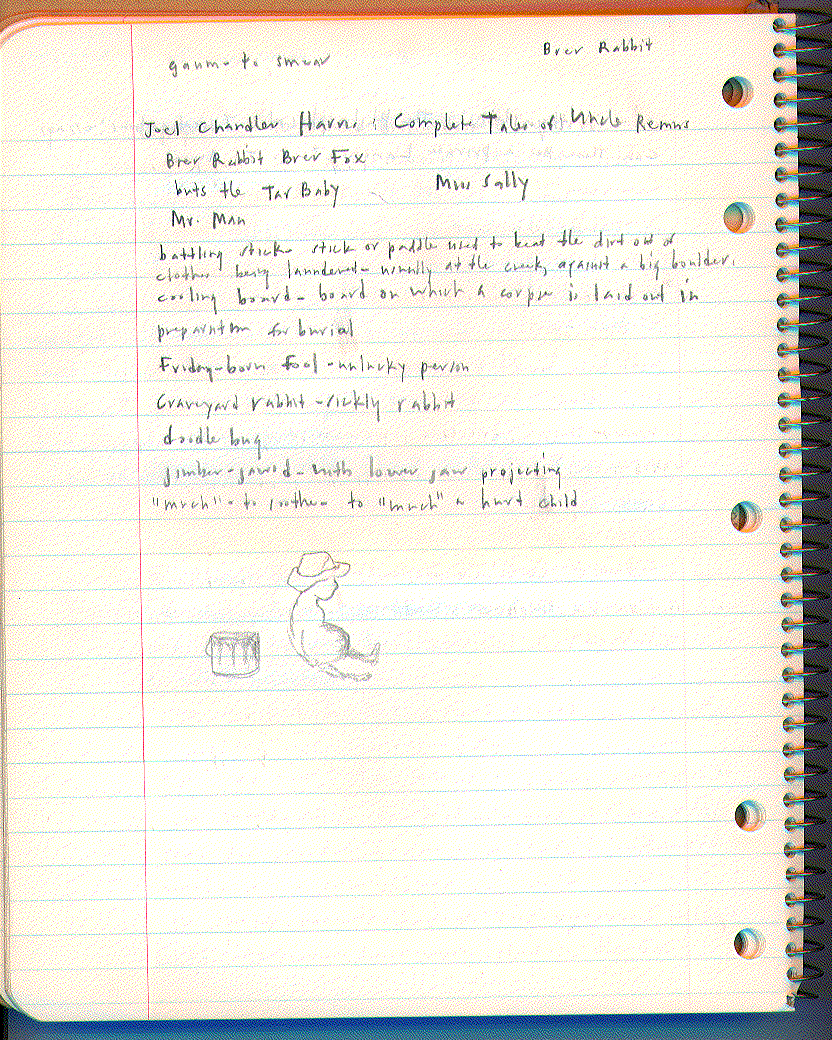 Brer Rabbit
gaum- to smear
Joel Chandler Harris: Complete Tales of Uncle Remus
Brer Rabbit Brer Fox
buts the Tar Baby Miss Sally
Mr. Man
battling stick- stick or paddle used to beat the dirt out of
clothes being laundered- usually at the creek, against a big boulder.
cooling board- board on which a corpse is laid out in
preparation for burial
Friday-born fool -unlucky person
Graveyard rabbit -sickly rabbit
doodle bug
jimber-jawed- with lower jaw projecting
"much"- to soothe- to "much" a hurt child